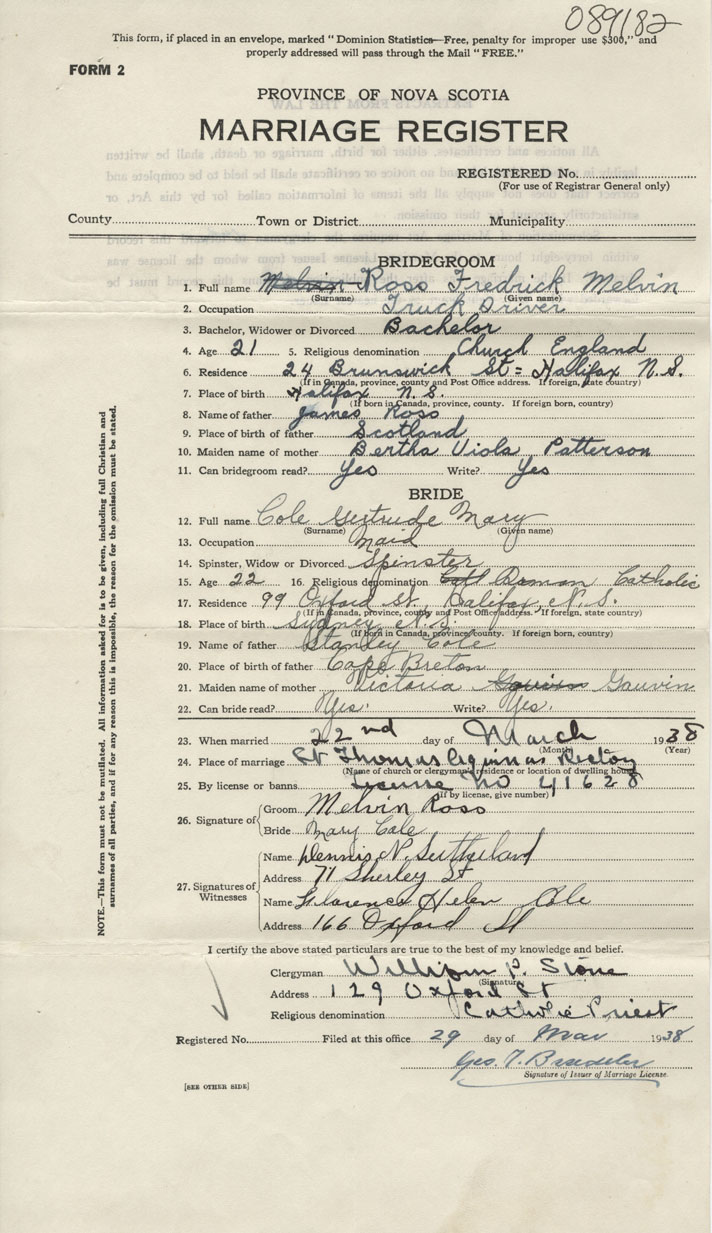 089182
This form, if placed in an envelope, marked "Dominion Statistics—Free, penalty for improper use $300," and
properly addressed will pass through the Mail "FREE."
FORM 2
PROVINCE OF NOVA SCOTIA
MARRIAGE REGISTER
REGISTERED No.
(For use of Registrar General only)
County Town or District Municipality
BRIDEGROOM
1. Full name Melvin Ross Fredrick Melvin
(Surname) (Given name)
2. Occupation Truck Driver
3. Bachelor, Widower or Divorced Bachelor
4. Age 21 5. Religious denomination Church England
6. Residence 24 Brunswick St = Halifax N.S.
(If in Canada, province, county and Post Office address. If foreign, state country)
7. Place of birth Halifax N.S.
(If born in Canada, province, county. If foreign born, country)
8. Name of father James Ross
9. Place of birth of father Scotland
10. Maiden name of mother Bertha Viola Patterson
11. Can bridegroom read? Yes Write? Yes
BRIDE
12. Full name Cole Gertrude Mary
(Surname) (Given name)
13. Occupation Maid
14. Spinster, Widow or Divorced Spinster
15. Age 22 16. Religious denomination Roman Catholic
17. Residence 99 Oxford St, Halifax, N.S.
(If in Canada, province, county and Post Office address. If foreign, state country)
18. Place of birth Sydney N.S.
(If born in Canada, province, county. If foreign born, country)
19. Name of father Stanley Cole
20. Place of birth of father Cape Breton
21. Maiden name of mother Victoria Gauvin
22. Can bride read? Yes. Write? Yes.
23. When married 22nd day of March 1938
(Month) (Year)
24. Place of marriage St Thomas Aquinas Rectory
(Name of church or clergyman's residence or location of dwelling house)
25. By license or banns License No 41628
(If by license, give number)
26. Signature of
Groom Melvin Ross
Bride Mary Cole
27. Signatures of Witnesses
Name Dennis N. Sutherland
Address 71 Sherley St
Name Florence Helen Cole
Address 166 Oxford St
I certify the above stated particulars are true to the best of my knowledge and belief.
Clergyman William P. Stone
(Signature)
Address 129 Oxford St
Religious denomination Catholic Priest
Registered No. Filed at this office 29 day of Mar 1938
Geo. T.
Signature of Issuer of Marriage License.
[SEE OTHER SIDE]
NOTE.—This form must not be mutilated. All information asked for is to be given, including full Christian and
surnames of all parties, and if for any reason this is impossible, the reason for the omission must be stated.